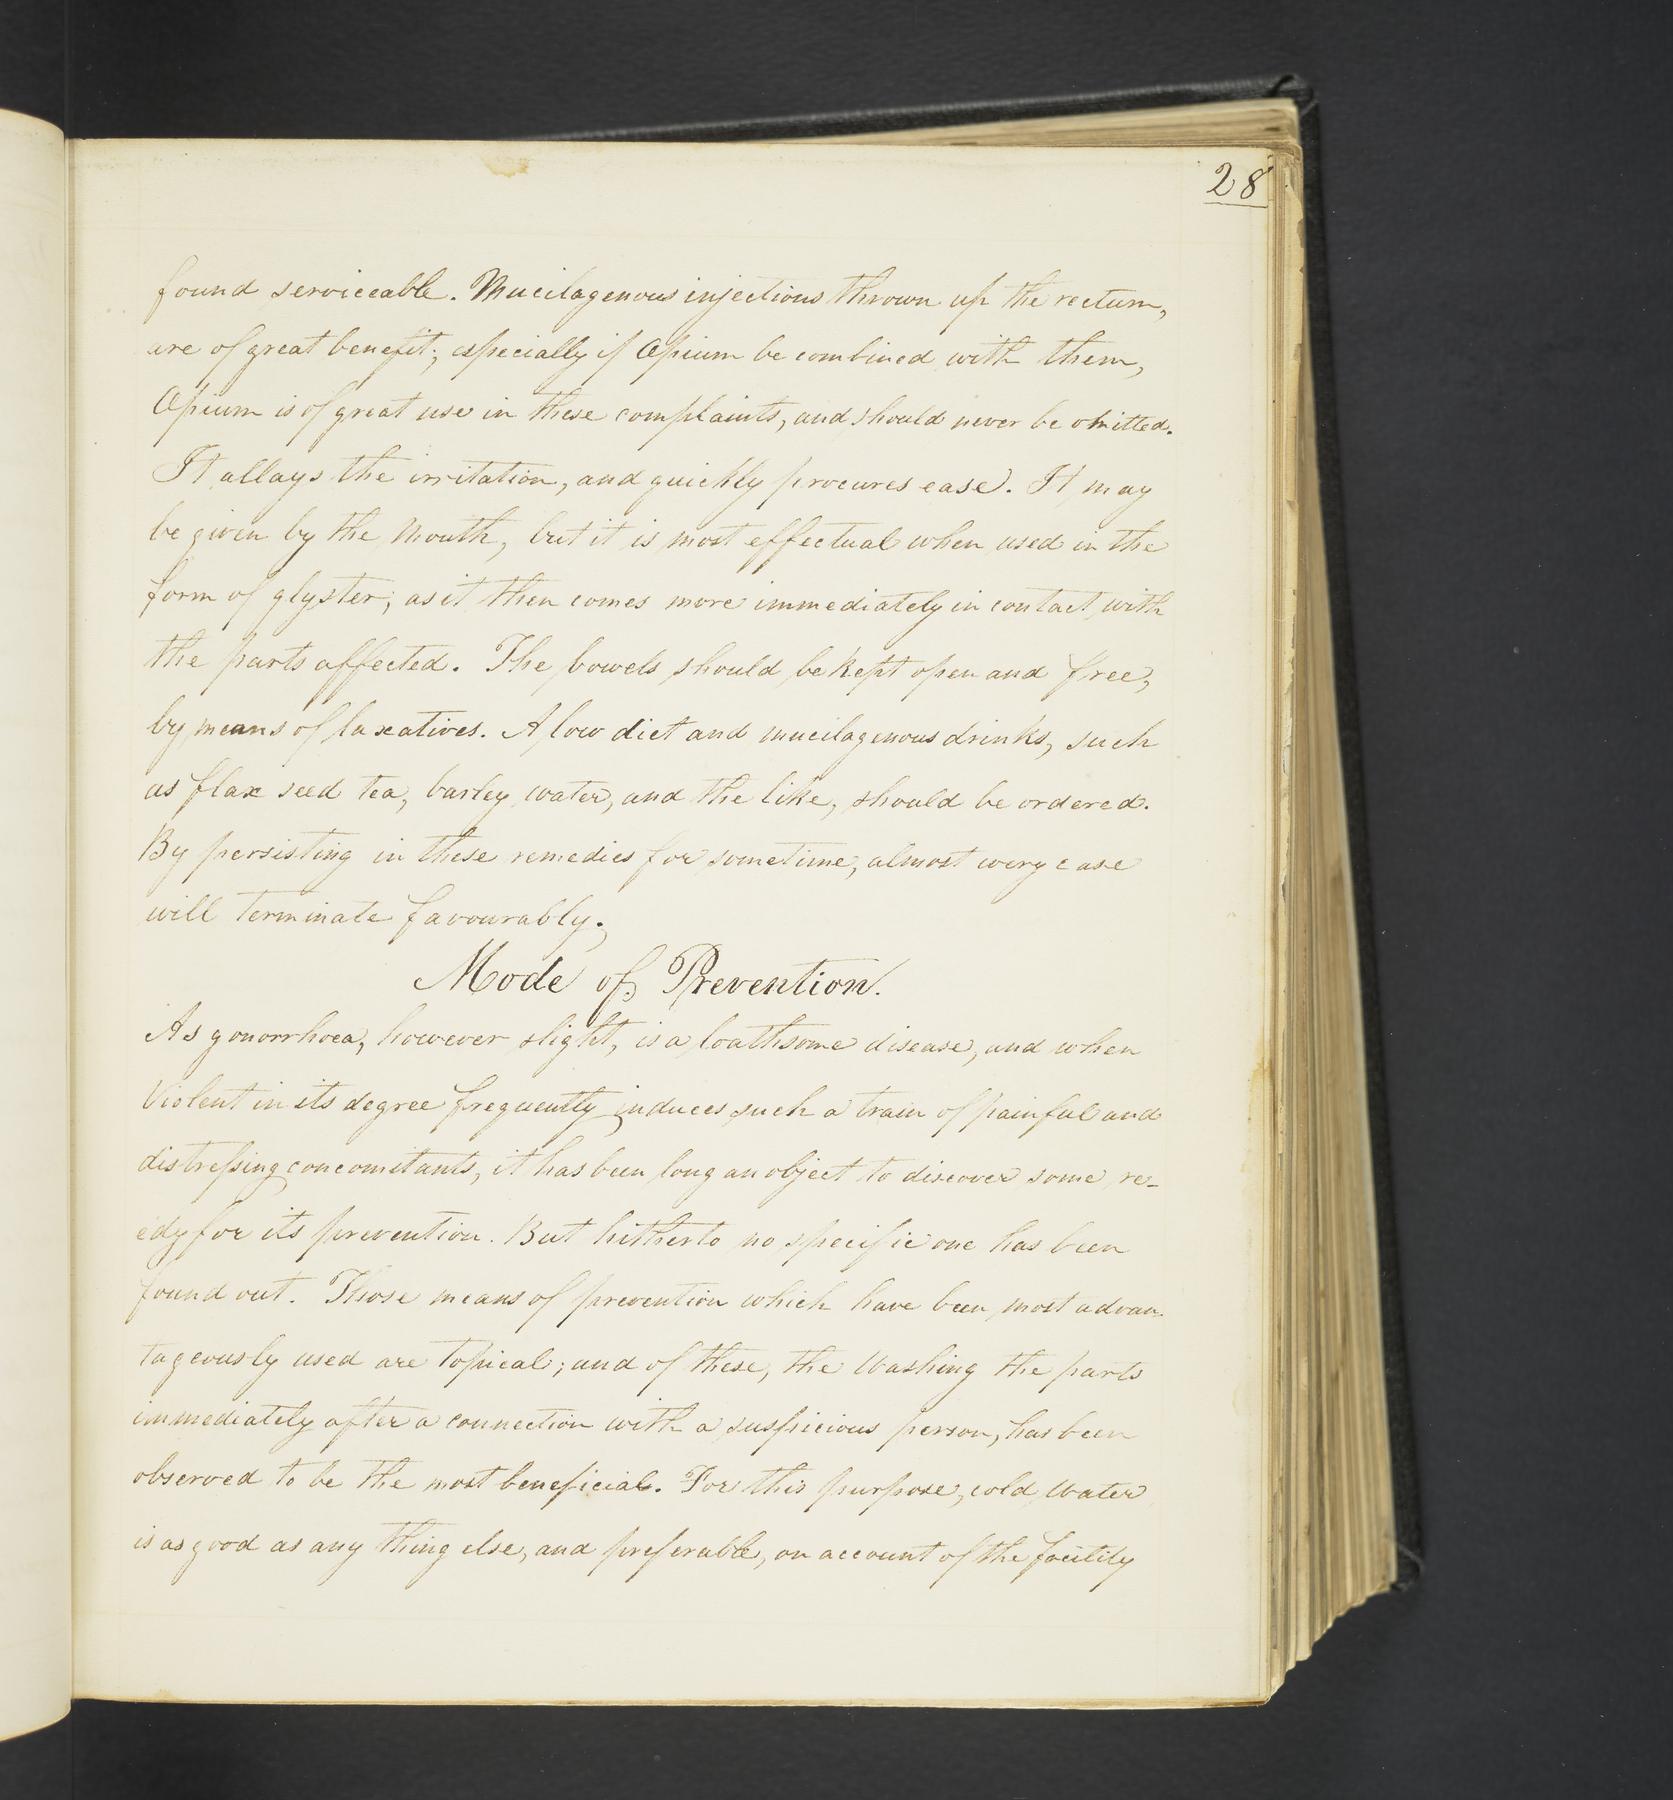 28
found serviceable. Mucilagenous injections thrown up the rectum,
are of great benefit; especially if Opium be combined with them,
Opium is of great use in these complaints, and should never be omitted.
It allays the irritation, and quickly procures ease. It may
be given by the Mouth, but it is most effectual when used in the
form of glyster; as it then comes more immediately in contact with
the parts affected. The bowels should be kept open and free,
by means of laxatives. A low diet and mucilagenous drinks, such
as flax seed tea, barley water, and the like, should be ordered.
By persisting in these remedies for sometime, almost every case
will terminate favourably.
Mode of Prevention.
As gonorrhoea, however slight, is a loathsome disease, and when
Violent in its degree frequently induces such a train of painful and
distressing concomitants, it has been long an object to discover some re-
edy for its prevention. But hitherto no specific one has been
found out. Those means of prevention which have been most advan-
tageously used are topical; and of these, the Washing the parts
immediately after a connection with a suspicious person, has been
observed to be the most beneficial. For this purpose, cold Water
is as good as any thing else, and preferable, on account of the facility